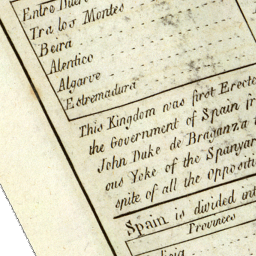 Entre Duer
Tra los Montes
Beira
Alentico
Algarve
Estremadura
This Kingdom was first Erecte
the Government of Spain
John Duke de Braganza
ous Yoke of the Spanyar
spite of all the Oppositi
Spain is divided int
Provinces